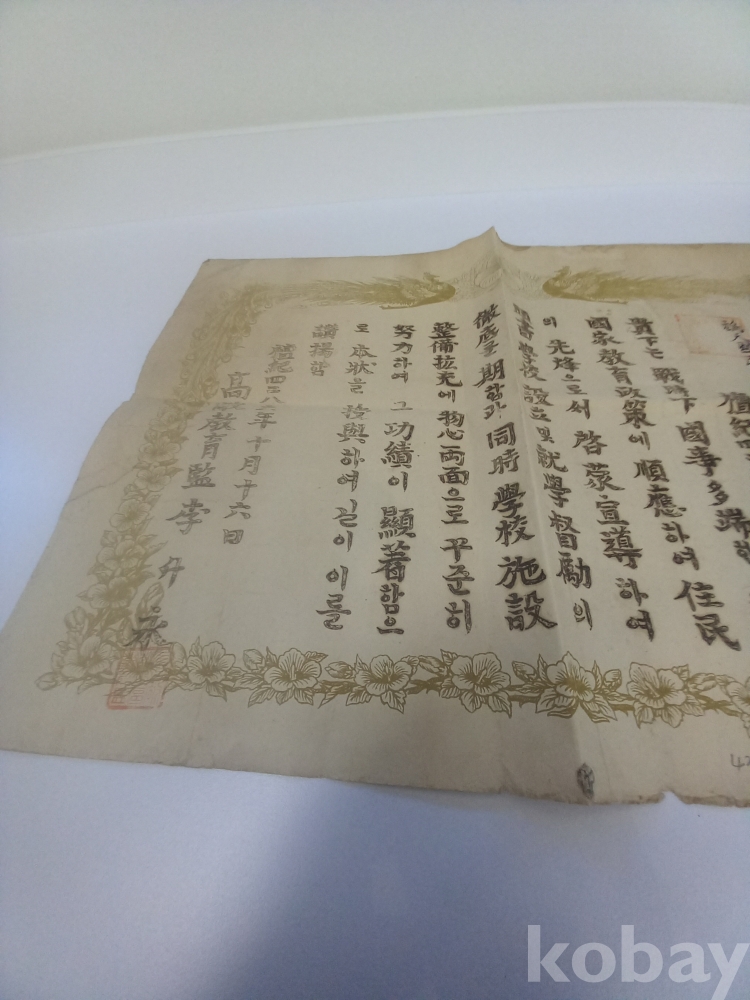 檀紀四
貴下는 戰時下 國事多端한
國家敎育政策에 順應하여 住民
의 先烽으로서 啓蒙宣導하여
學校設立및 就學督勵의
徹底를 期함과 同時 學校施設
整備拡充에 物心両面으로 꾸준히
努力하여 그 功績이 顯著함으
로 本狀을 授與하여 길이 이를
讃揚함
檀紀四二八 年十月十六日
高 敎育監 李升
42
kobay